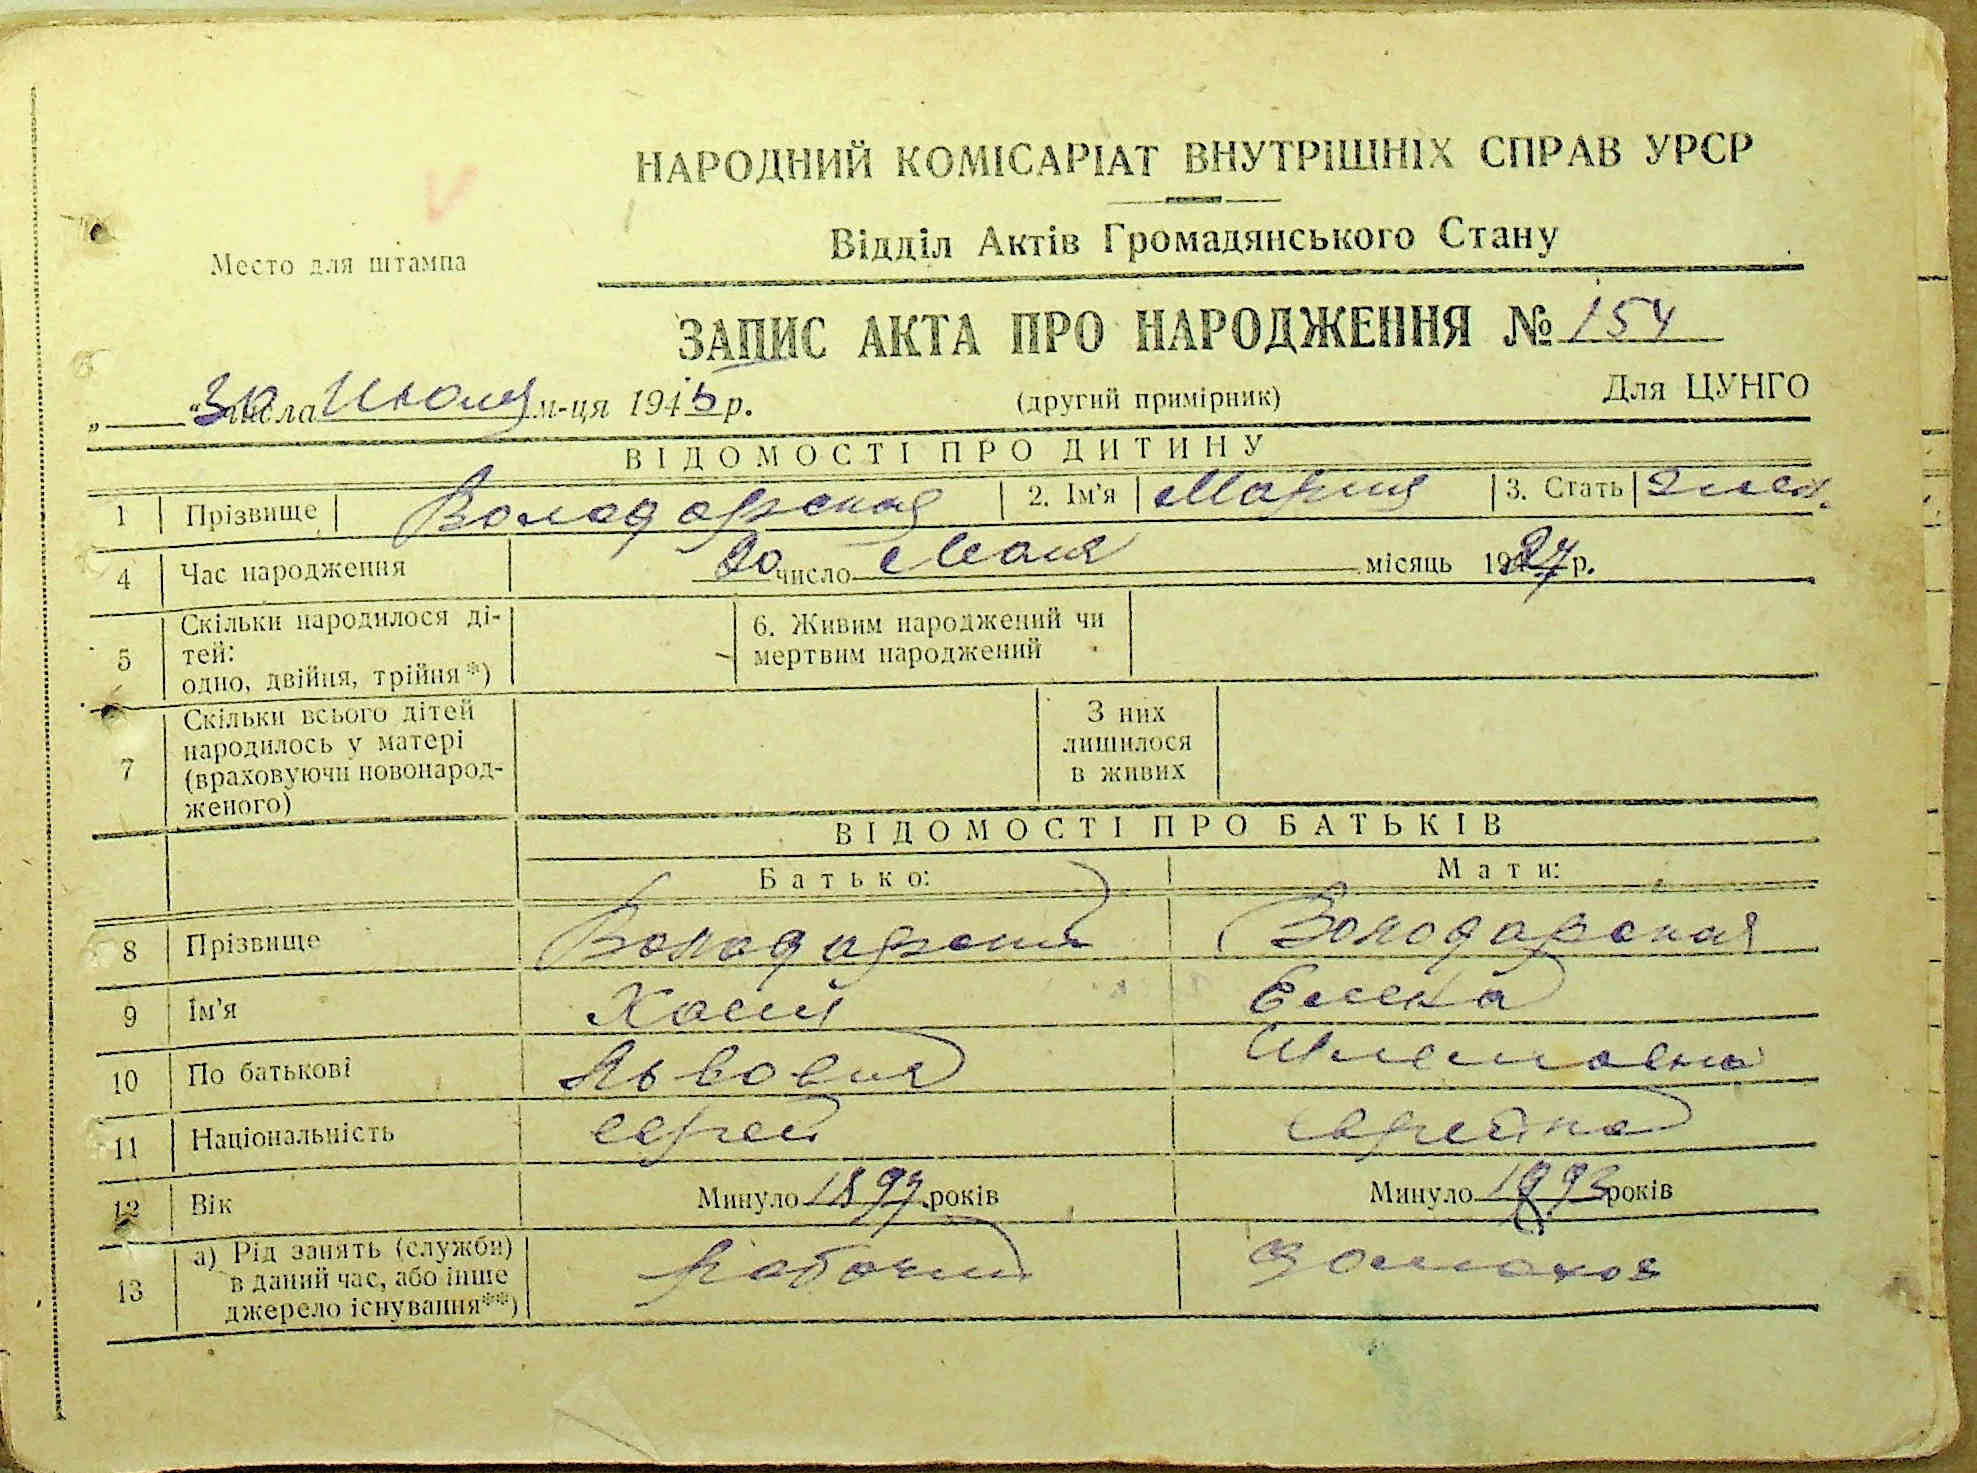 НАРОДНИЙ КОМІСАРІАТ ВНУТРІШНІХ СПРАВ УРСР
Место для штампа
Відділ Актів Громадянського Стану
ЗАПИС АКТА ПРО НАРОДЖЕННЯ № 154
„ 30 “ числа Июля м-ця 1945 р. (другий примірник) Для ЦУНГО
ВІДОМОСТІ ПРО ДИТИНУ
1 Прізвище Володарская 2. Ім'я Мария 3. Стать жен.
4 Час народження 20 число Мая місяць 1927 р.
5 Скільки народилося ді-
тей:
одно, двійня, трійня*)
6. Живим народжений чи
мертвим народжений
7 Скільки всього дітей
народилось у матері
(враховуючи новонарод-
женого)
З них
лишилося
в живих
ВІДОМОСТІ ПРО БАТЬКІВ
Батько: Мати:
8 Прізвище Володарский Володарская
9 Ім'я Хаим Елена
10 По батькові Львович
11 Національність еврей еврейка
12 Вік Минуло 1897 років Минуло 1893 років
13 а) Рід занять (служби)
в даний час, або інше
джерело існування**)
рабочий домохоз